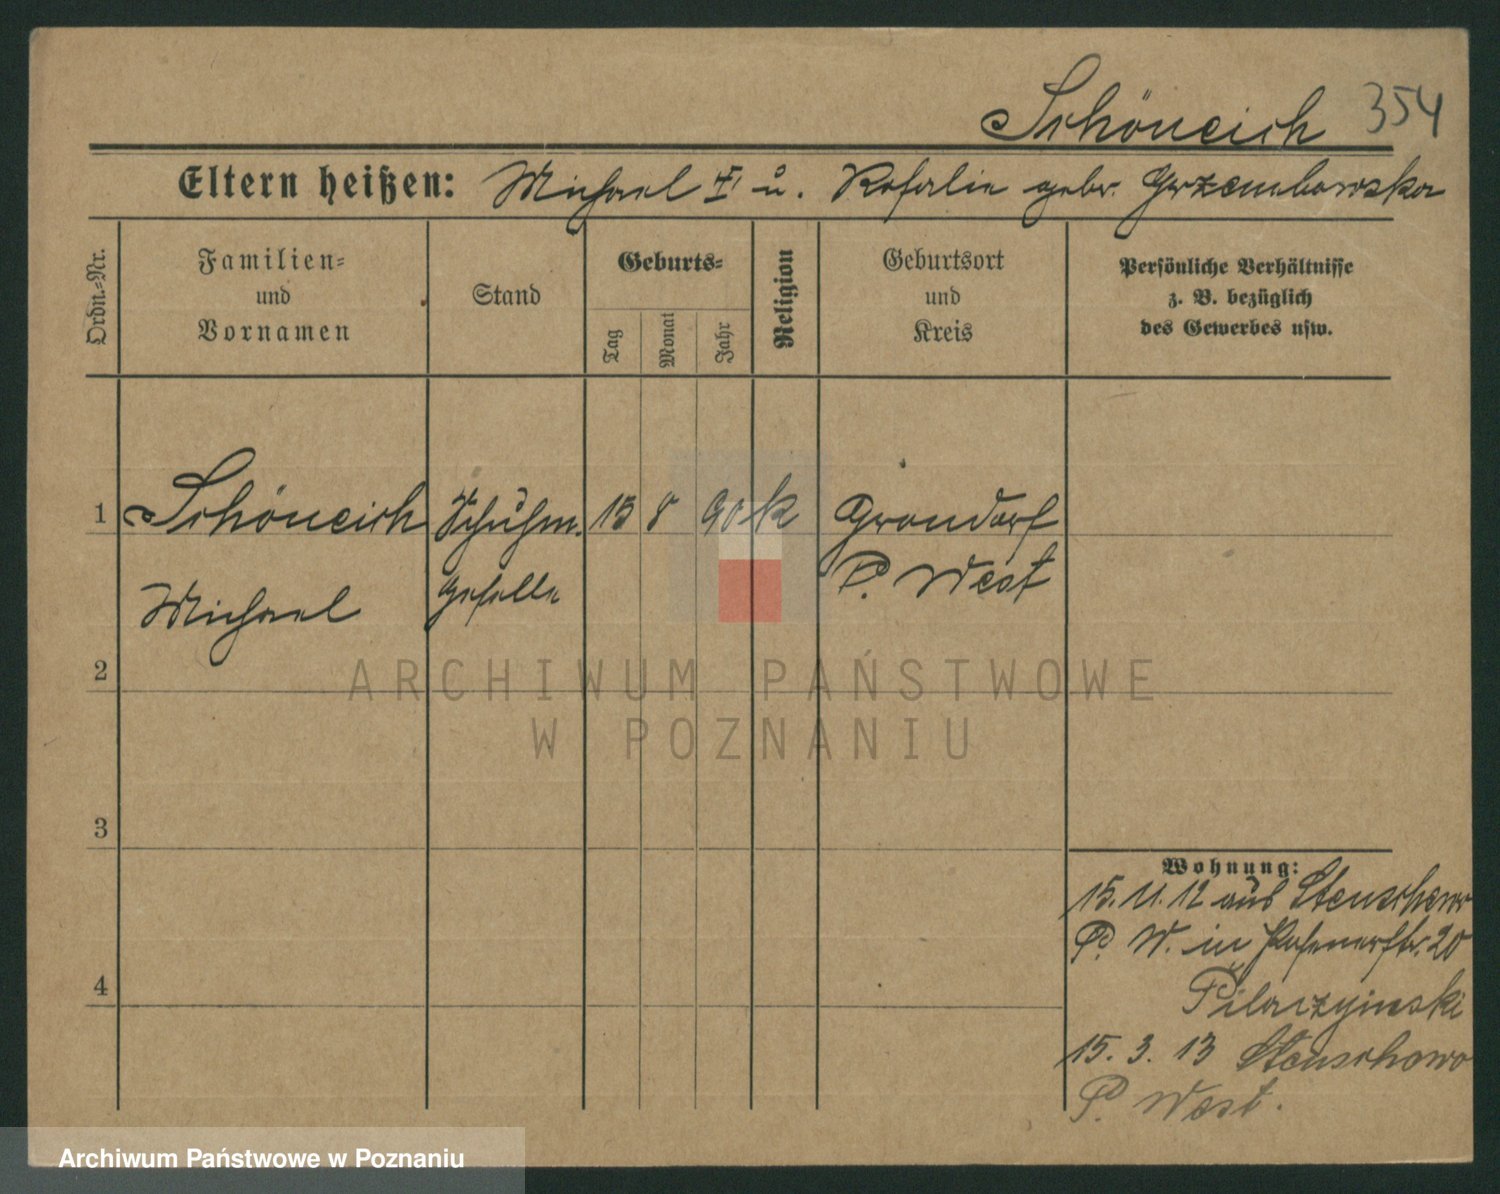 Schöneich 354
Eltern heißen: Michael † u. Rosalie gebr. Grzembowska
Ordn.-Nr.
Familien-
und
Vornamen
Stand
Geburts-
Tag
Monat
Jahr
Religion
Geburtsort
und
Kreis
Persönliche Verhältnisse
z. B. bezüglich
des Gewerbes usw.
1 Schöneich Schuhm. 13 8 90 k Grondorf
Michael Geselle P. West
2
3
4
Wohnung:
15. 11. 12 aus Stenschewo
P. W. in Posenerstr. 20
Pilarzyinski
15. 3. 13 Stenschewo
P. West.
ARCHIWUM PAŃSTWOWE
W POZNANIU
Archiwum Państwowe w Poznaniu